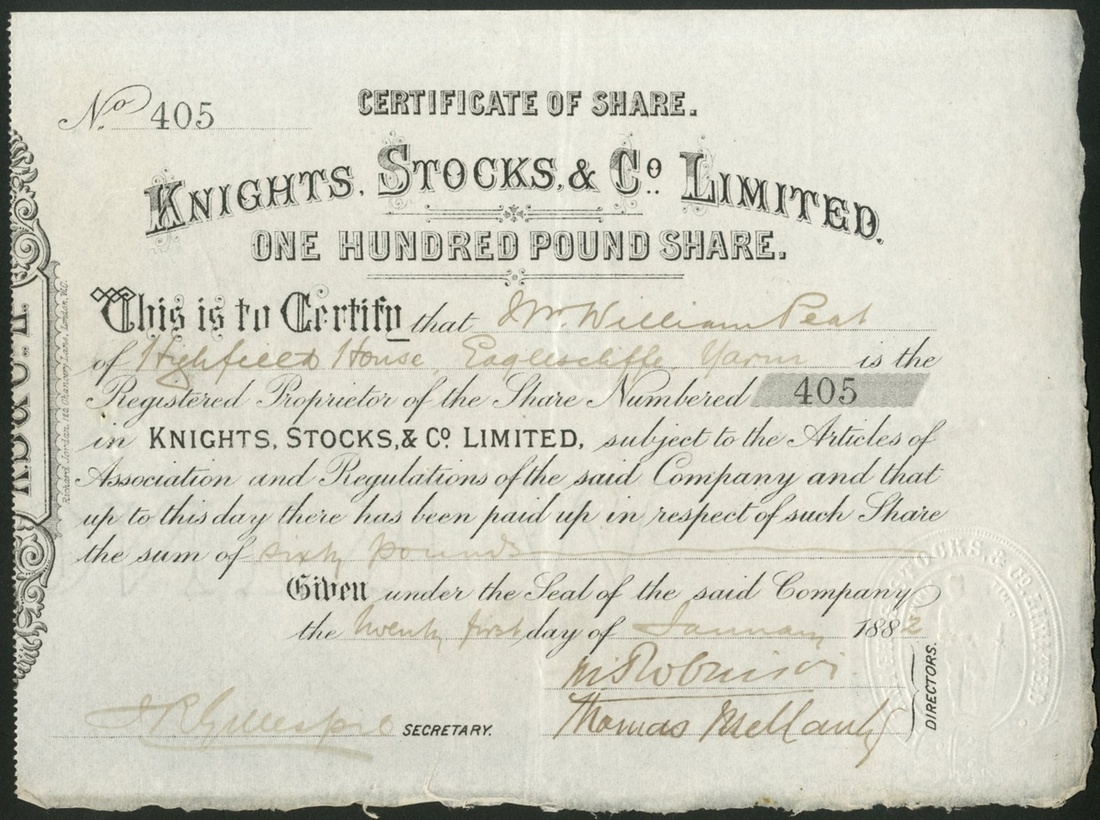 No. 405
CERTIFICATE OF SHARE.
KNIGHTS, STOCKS, & Co. LIMITED.
ONE HUNDRED POUND SHARE.
This is to Certify that Mr. William Peat
of Highfield House, Eaglescliffe, Yarm is the
Registered Proprietor of the Share Numbered 405
in KNIGHTS, STOCKS, & Co. LIMITED, subject to the Articles of
Association and Regulations of the said Company and that
up to this day there has been paid up in respect of such Share
the sum of sixty pounds
Given under the Seal of the said Company
the twenty first day of January 1882
Robinson
Thomas
DIRECTORS.
J R Gillespie SECRETARY.
Richard Jordan, 120 Chancery Lane, London, W.C.
STOCKS, & CO. LIMITED